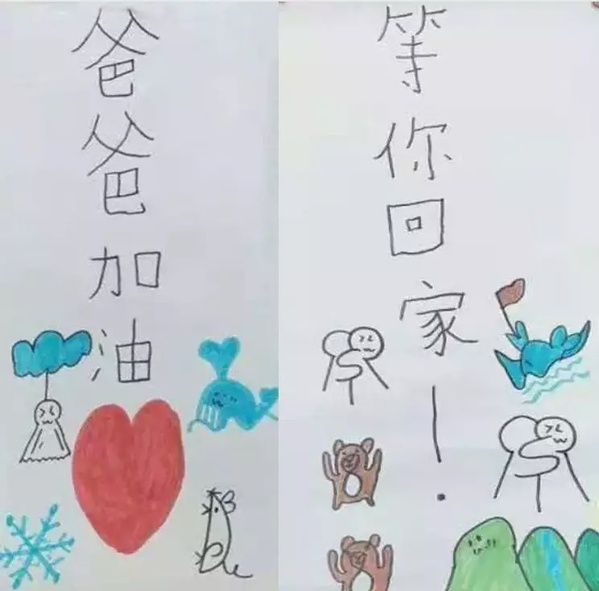 爸爸加油
等你回家！